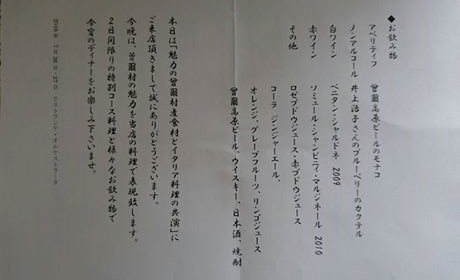 ◆お飲み物
アペリティフ　曾爾高原ビールのモナコ
ノンアルコール　井上浩子さんのブルーベリーのカクテル
白ワイン　ベニタン・シャルドネ 2009
赤ワイン　ソミュール・シャンピニィ・マルジネール 2010
その他　ロゼブドウジュース・赤ブドウジュース
コーラ　ジンジャーエール、
オレンジ、グレープフルーツ、リンゴジュース
曾爾高原ビール、ウイスキー、日本酒、焼酎
本日は「魅力の曾爾村産食材とイタリア料理の共演」に
ご来店頂きまして誠にありがとうございます。
今晩は、曾爾村の魅力を当店の料理で表現致します。
2日間限りの特別コース料理と様々なお飲み物で
今宵のディナーをお楽しみ下さいませ。